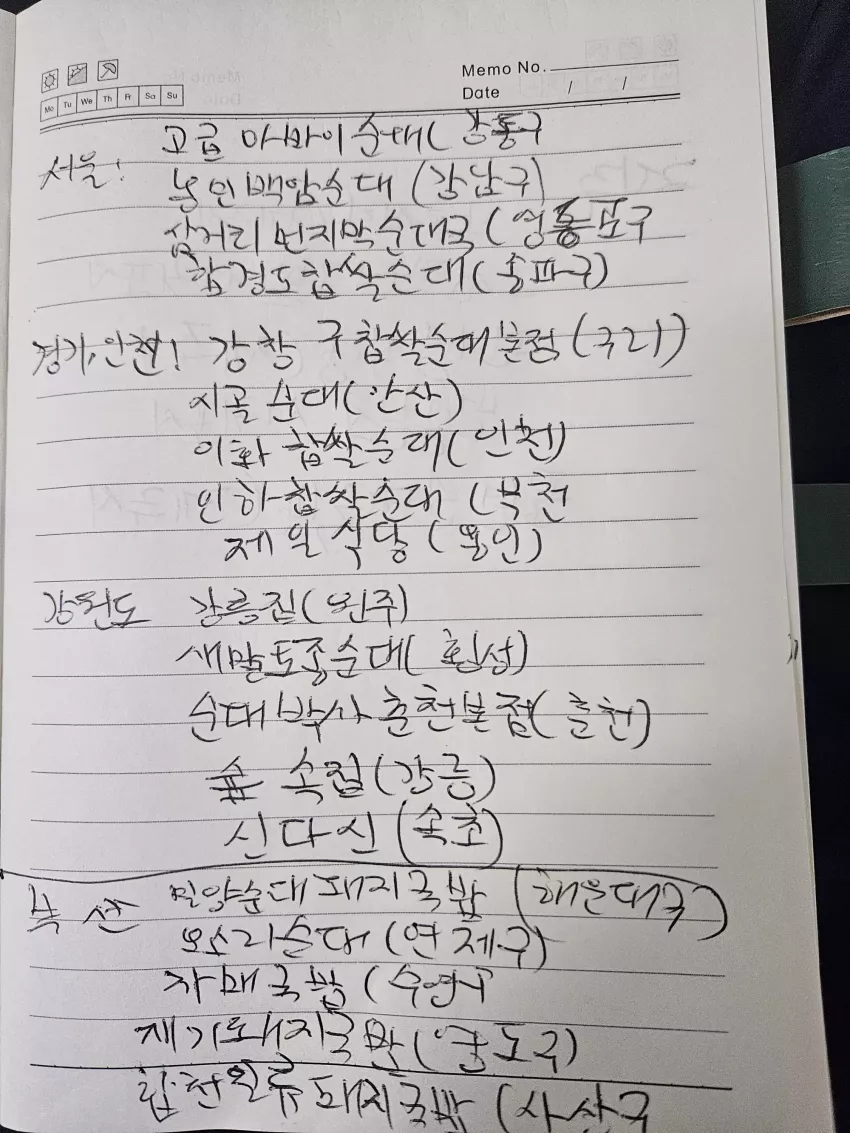 Memo No.
Mo Tu We Th Fr Sa Su
Date / /
고급 아바이순대( 강동구
서울!
용인백암순대 (강남구)
삼거리먼지막순대국 (영등포구
함경도찹쌀순대(송파구)
경기,인천! 강창구찹쌀순대본점(구리)
시골순대(안산)
이화찹쌀순대(인천)
인하찹쌀순대 (부천
제일식당(용인)
강원도 강릉집(원주)
새말토종순대( 횡성)
순대박사춘천본점(춘천)
숲속집(강릉)
신다신(속초)
부산 밀양순대돼지국밥 (해운대구)
오소리순대 (연제구)
자매국밥 (수영구
재기돼지국밥(영도구)
합천일류돼지국밥 (사상구